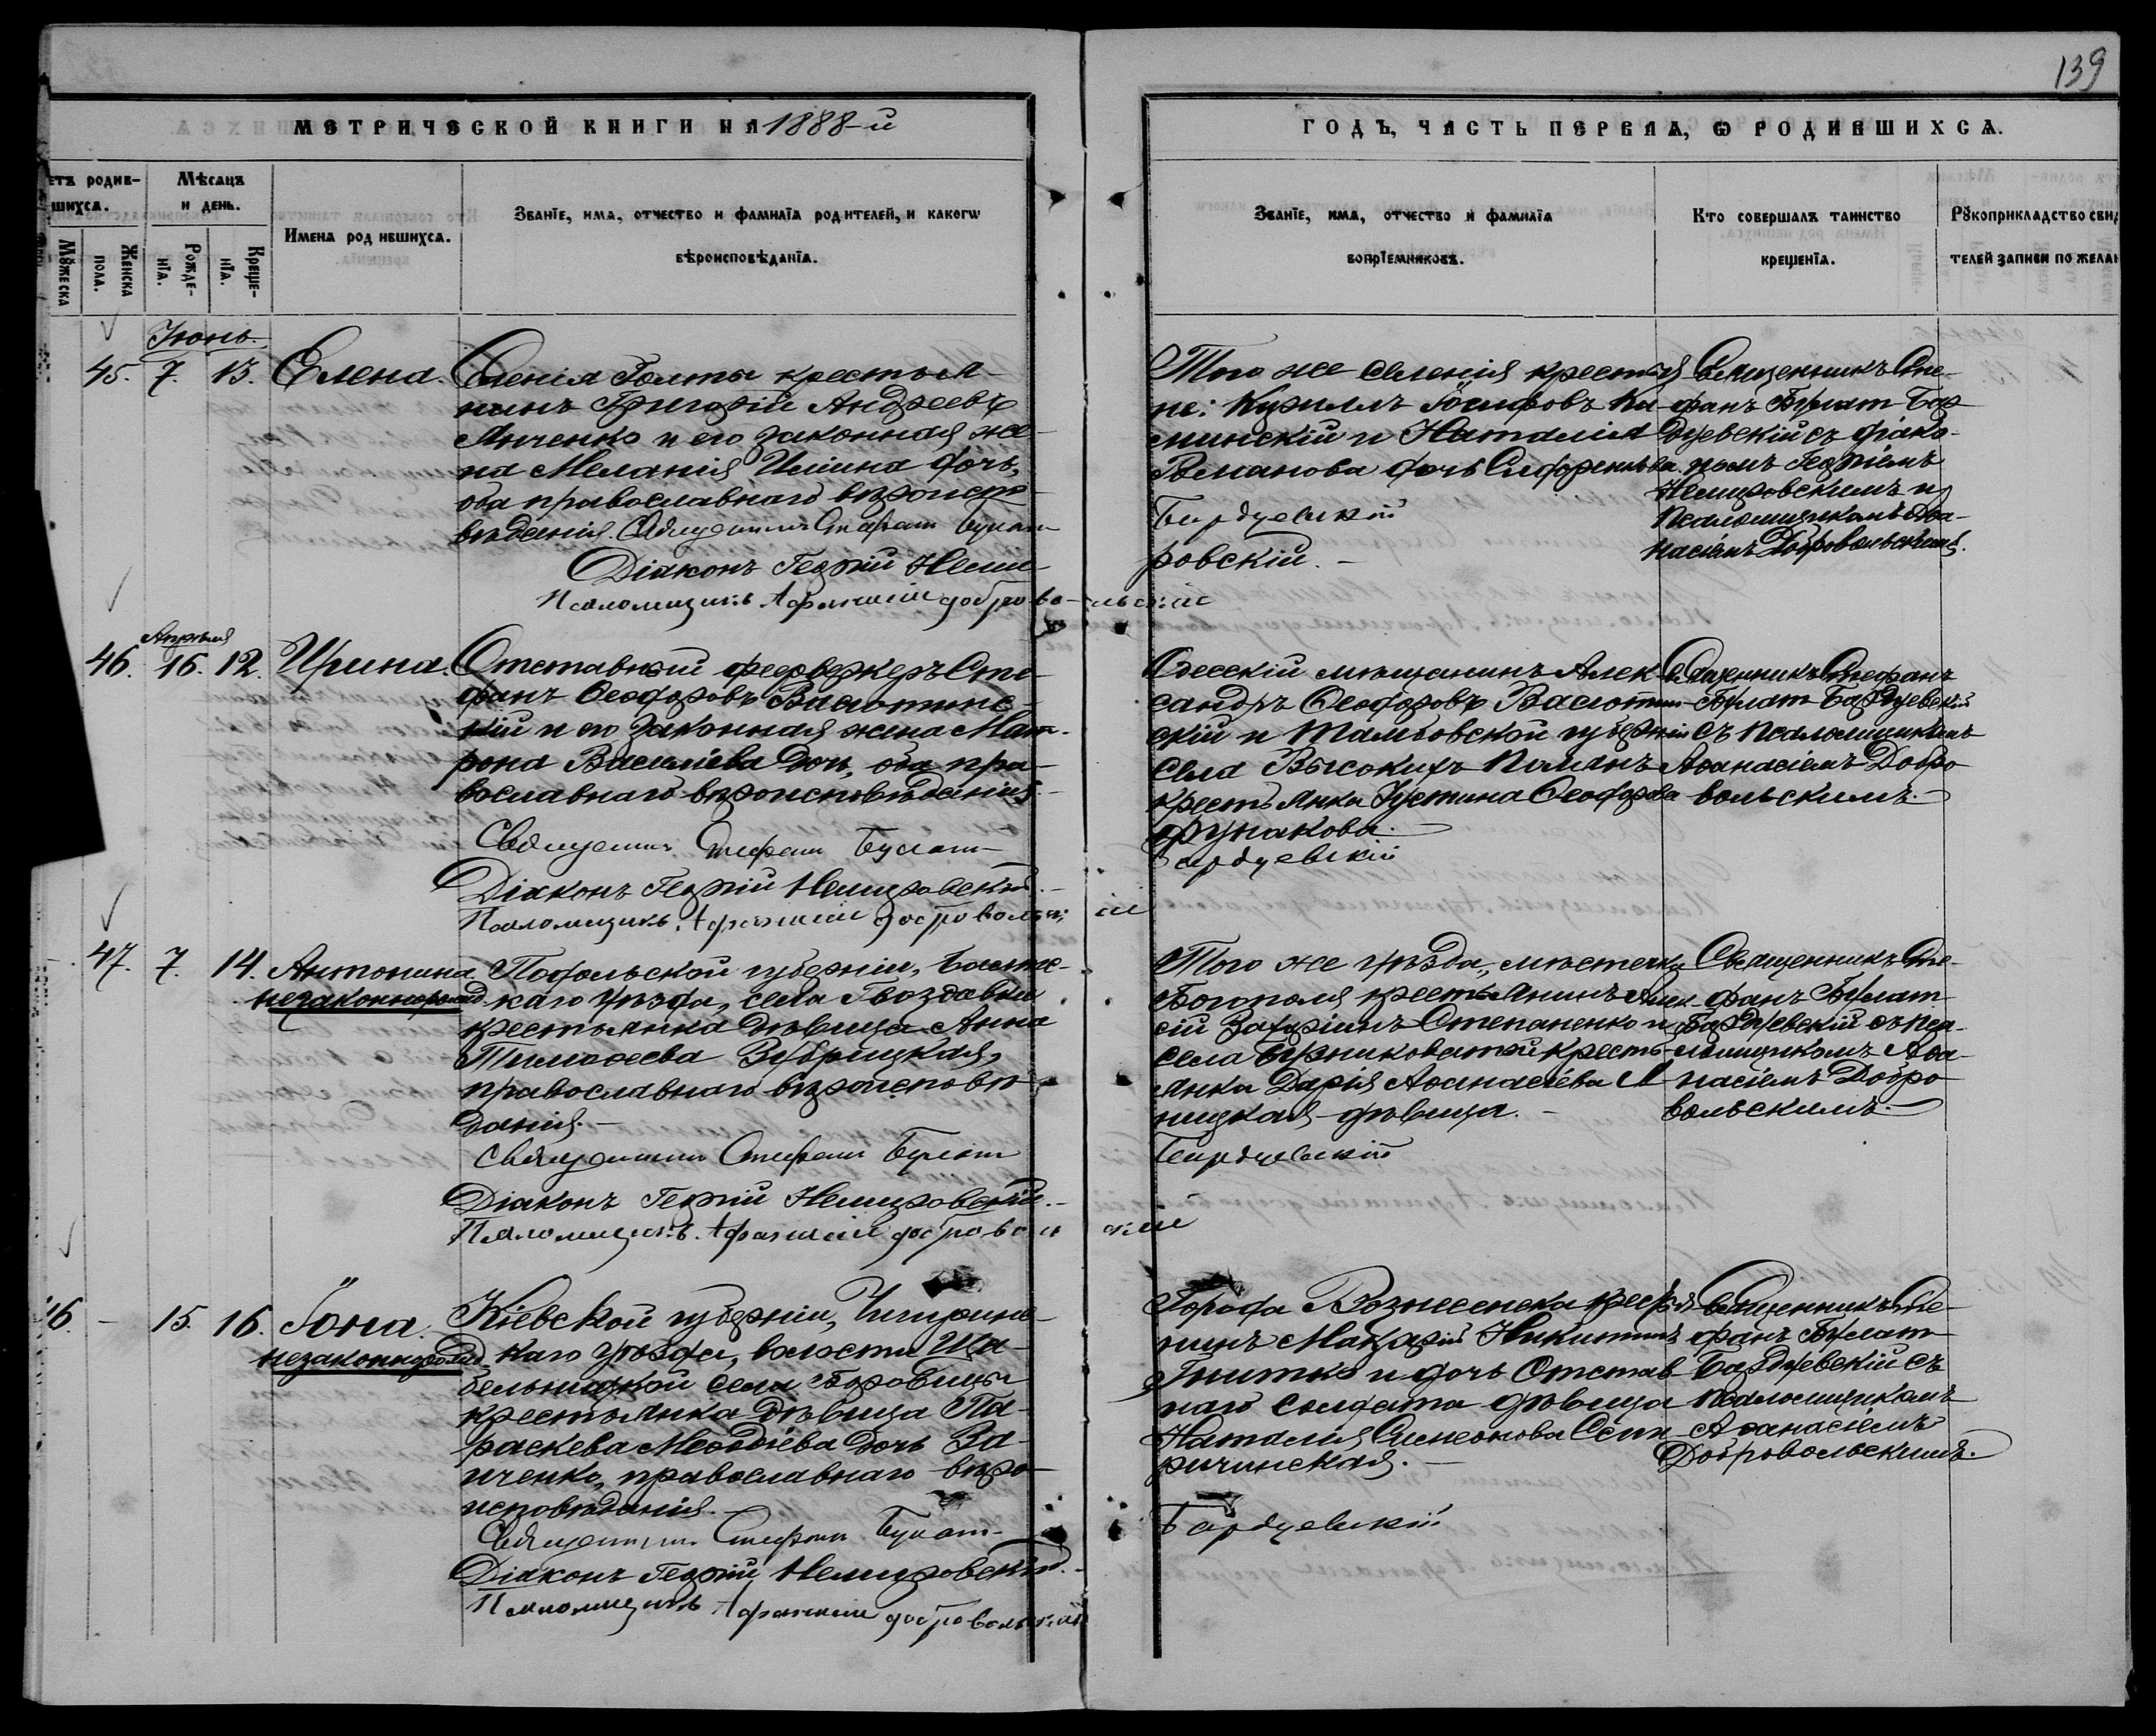 139
МЕТРИЧЕСКОЙ КНИГИ НА 1888-й
ГОДЪ, ЧАСТЬ ПЕРВАЯ, Ѡ РОДИВШИХСѦ.
етъ родив-
шихсѧ.
Мѣсѧцъ
и день.
Мꙋжеска
Женска
пола.
Рожде-
нїѧ.
Креще-
нїѧ.
Имена родившихсѧ.
Званїе, имѧ, отчество и фамилїѧ родителей, и какогѡ
вѣроисповѣданїѧ.
Званїе, имѧ, отчество и фамилїѧ
воспрїемниковъ.
Кто совершалъ таинство
крещенїѧ.
Рꙋкоприкладство свид
телей записи по желан
Іюнь.
45. 7. 13. Елена.
Селенія Голты крестья-
нинъ Григорій Андреевъ
Янченко и его законная же-
на Меланія Ильина дочь,
оба православнаго вѣроиспо-
вѣданія. Священникъ Стефанъ Булат-
Діаконъ Георгій Неми-
Псаломщикъ Афанасій Доброво-льскій
Того же селенія крестья-
не: Кириллъ Іосифовъ Ка-
минскій и Наталія
Романова дочь Сидоренкова.
Бардуевскій
ровскій. -
Священникъ Сте-
фанъ Булат-Бар-
дуевскій съ діако-
номъ Георгіемъ
Немировскимъ и
псаломщикомъ Аѳа-
насіемъ Добровольскимъ.
Апрѣля
46. 16. 12. Ирина.
Отставной фейерверкеръ Сте-
фанъ Ѳеодоровъ Васютинс-
кій и его законная жена Мат-
рона Васильева дочь, оба пра-
вославнаго вѣроисповѣданія.
Священникъ Стефанъ Булат-
Діаконъ Георгій Немировскій.
Псаломщикъ Афанасій Добровольскій
Одесскій мѣщанинъ Алек-
сандръ Ѳеодоровъ Васютин-
скій и Тамбовской губерніи
села Высокихъ Полянъ
крестьянка Устина Ѳеодорова
Бардуевскій
Священникъ Стефанъ
Булат-Бардуевскій
съ псаломщикомъ
Аѳанасіемъ Добро-
вольскимъ.
47. 7. 14. Антонина
незаконнорожд.
Подольской губерніи, Балтс-
каго уѣзда, села Гвоздавки
крестьянка дѣвица Анна
Тимоѳеева Зубрицкая,
православнаго вѣроисповѣ-
данія.
Священникъ Стефанъ Булат
Діаконъ Георгій Немировскій.
Псаломщикъ Афанасій Добровольскій
Того же уѣзда, мѣстечка
Богополя крестьянинъ Алек-
сій Захаріинъ Степаненко и
села крестьянка
Дарія Аѳанасіева
ницкая дѣвица.
Бардуевскій
Священникъ Сте-
фанъ Булат-
Бардуевскій съ пса-
ломщикомъ Аѳа-
насіемъ Добро-
вольскимъ.
16. - 15. 16. Іона.
незаконнорожд.
Кіевской губерніи, Чигирин-
каго уѣзда, волости Ша-
бельницкой села Боровицы
крестьянка дѣвица Па-
раскева Меѳодіева дочь За-
иченко, православнаго вѣро-
исповѣданія.
Священникъ Стефанъ Булат-
Діаконъ Георгій Немировскій.
Псаломщикъ Афанасій Добровольскій
Города Вознесенска крестья-
нинъ Макарій Никитинъ
Гнитко и дочь отстав-
наго солдата дѣвица
Наталія Симеонова
Бардуевскій
Священникъ Сте-
фанъ Булат-
Бардуевскій съ
псаломщикомъ
Аѳанасіемъ
Добровольскимъ.